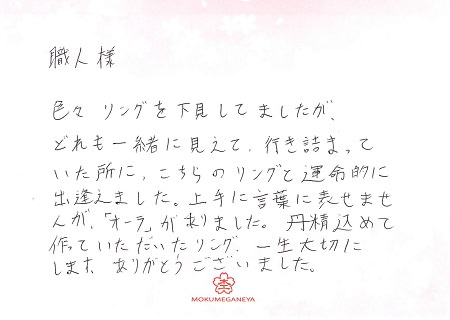 職人様
色々 リングを下見してましたが、
どれも一緒に見えて、行き詰まって
いた所に、こちらのリングと運命的に
出逢えました。上手に言葉に表せませ
んが、「オーラ」がありました。丹精込めて
作っていただいたリング、一生大切に
します。ありがとうございました。
MOKUMEGANEYA